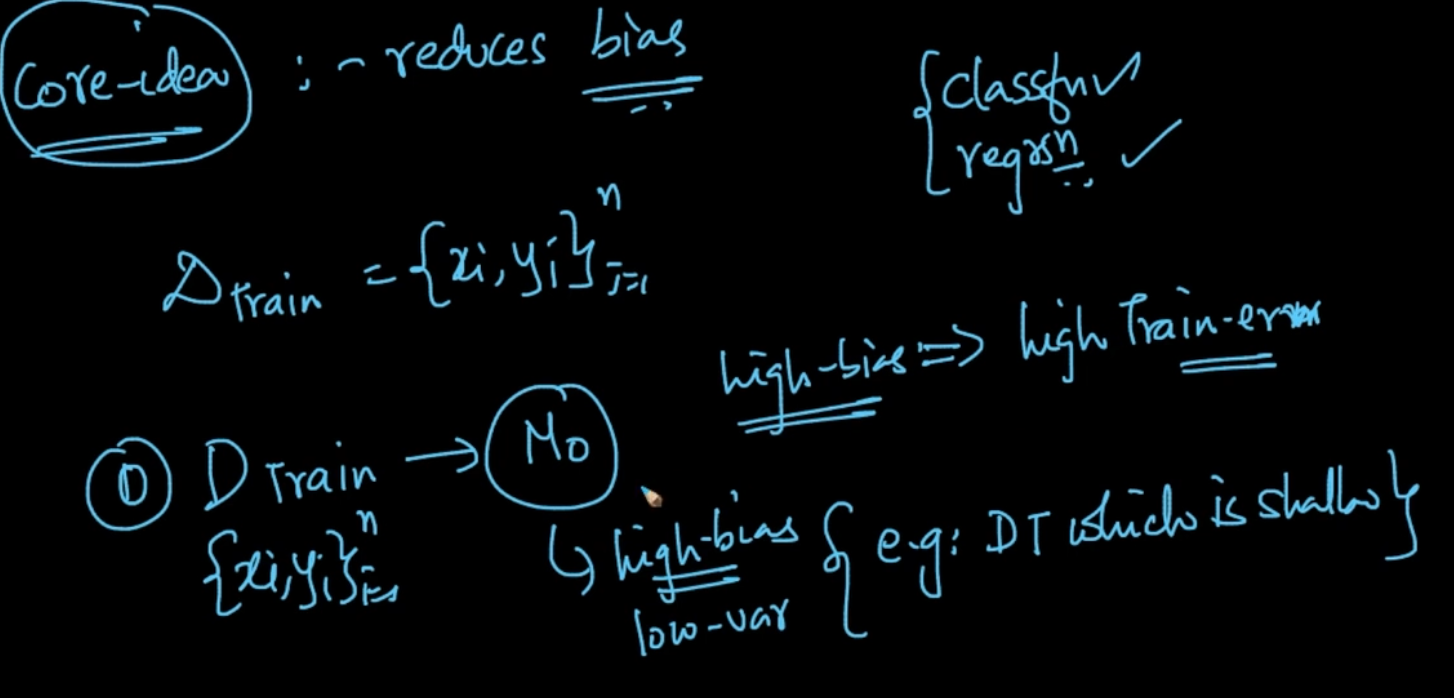 Core-idea : - reduces bias
{ classfn ✓
regrsn ✓
D Train = {xi, yi}ⁿ i=1
high-bias => high Train-error
⓪ D Train → M0
{xi, yi}ⁿ i=1
↳ high-bias { e.g: DT which is shallow }
low-var